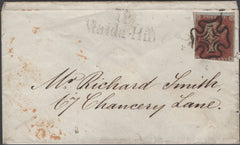 Maida Hill
Mr. Richard Smith,
67 Chancery Lane.